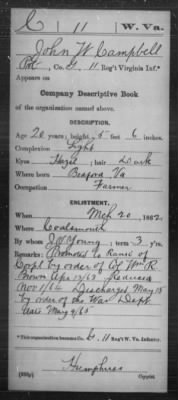 C | 11 | W. Va.
John W Campbell
Pvt, Co. G, 11 Reg't Virginia Inf.*
Appears on
Company Descriptive Book
of the organization named above.
DESCRIPTION.
Age 20 years; height 5 feet 6 inches.
Complexion Light
Eyes Hazel; hair Dark
Where born Bedford Va
Occupation Farmer
ENLISTMENT.
When Mch 20, 1862.
Where Coalsmouth
By whom J W Young; term 3 y'rs.
Remarks: Promoted to Rank of
Corpl by order of Col Wm R.
Brown Apr 1/63 Reduced
Nov 1/64 Discharged May 15
by order of the War Dept
date May 4/65
*This organization became Co. G, 11 Reg't W. Va. Infantry.
Humphries
Copyist.